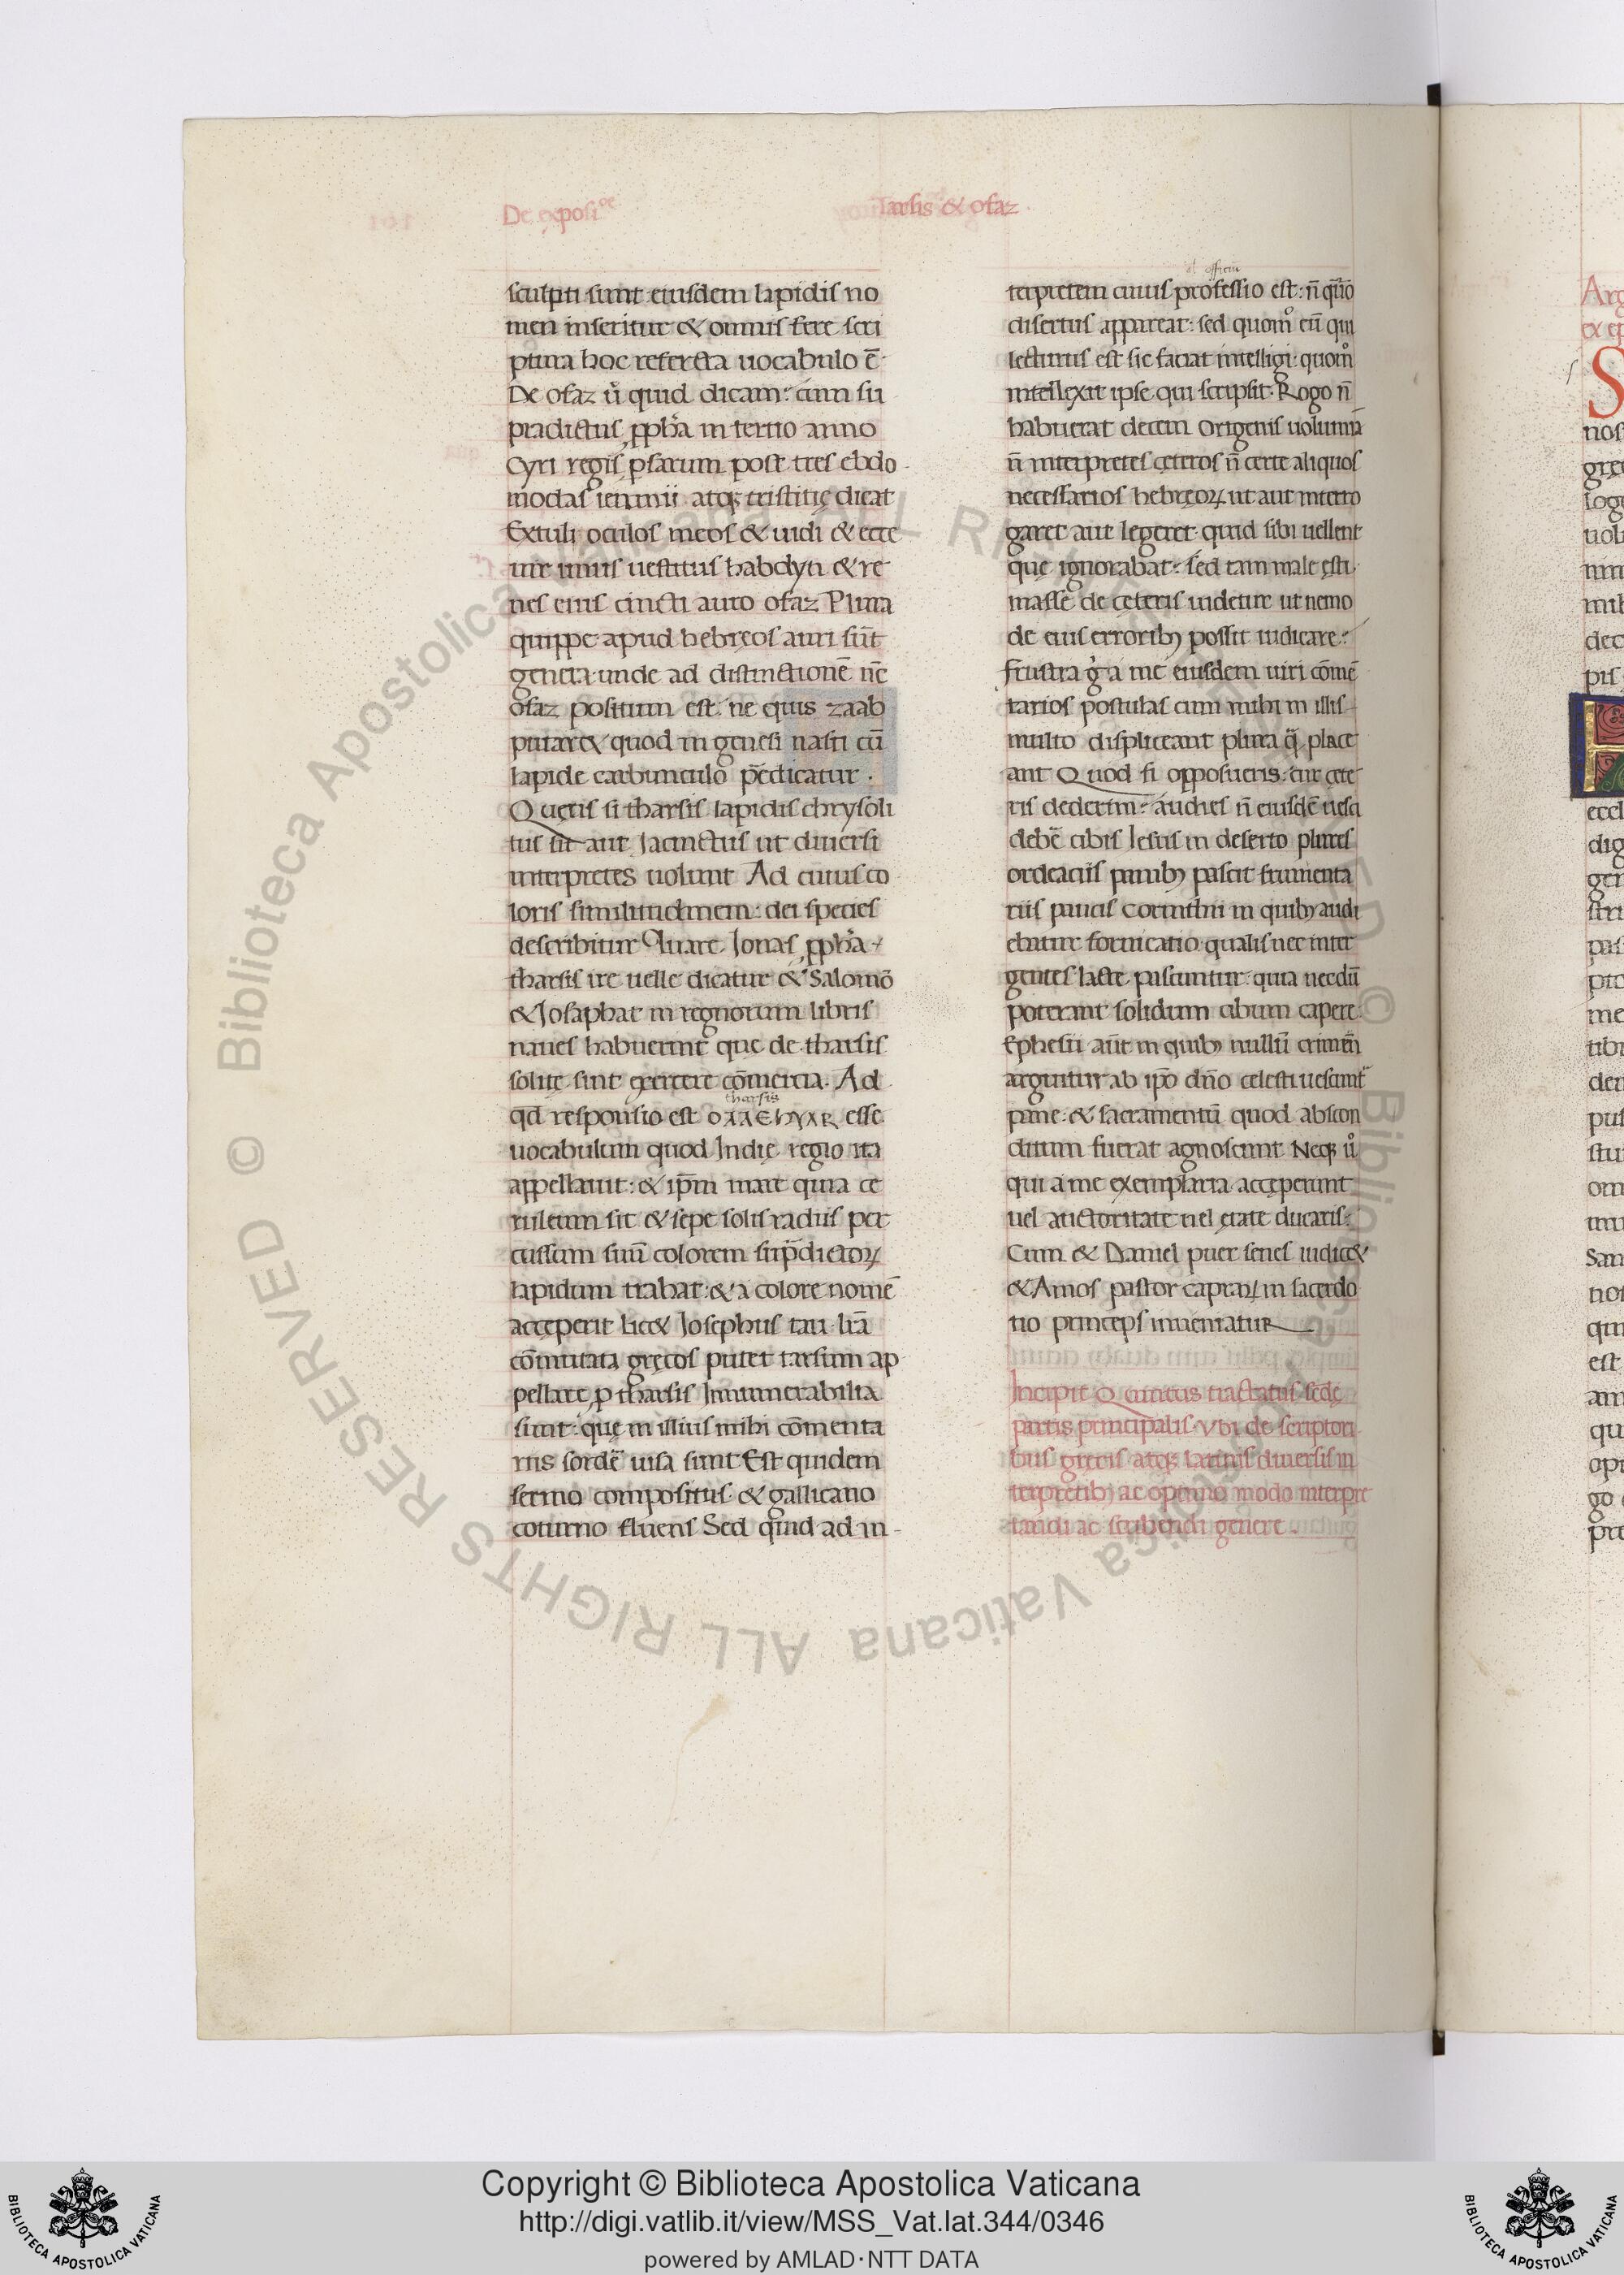 De exposi͞oe
Tarsis & ofaz
sculpti sunt eiusdem lapidis no
men inseritur & omnis fere scri
ptura hoc referta uocabulo ē·
De ofaz ů quid dicam: cum su
pradictus ꝓph̄a in tertio anno
Cyri regis ꝑsarum post tres ebdo
modas ieiunii atqꝫ tristitię dicat
Extuli oculos meos & uidi & ecce
uir unus uestitus habdyn & re
nes eius cincti auro ofaz Plura
quippe apud hebręos auri sūt
genera unde ad distinctionē nc̄
ofaz positum est· ne quis zaab
putar& quod in genesi nasci cū
lapide carbunculo p̄edicatur·
Queris si tharsis lapidis chrysoli
tus sit aut Jacinctus ut diuersi
interpretes uolunt Ad cuius co
loris similitudinem: dei species
describitur Quare Jonas ꝓph̄a
tharsis ire uelle dicatur & Salomō
& Josaphat in regnorum libris
naues habuerint que de tharsis
solite sint exercere cōmercia· Ad
tharsis
qd̄ responsio est esse
uocabulum quod Indię regio ita
appellatur: & ip̄m mare quia ce
ruleum sit & sepe solis radiis per
cussum suū colorem sup̄dictoꝝ
lapidum trahat: & a colore nomē
acceperit lic& Josephus tau lr̄a
cōmutata gręcos putet tarsum ap
pellare, ꝓ tharsis Innumerabilia
sunt: quę in illius mihi cōmenta
riis sordē uisa sunt Est quidem
sermo compositus & gallicano
coturno fluens Sed quid ad in
ał officiū
terpretem cuius professio est: n̄ quō
disertus appareat: sed quomͦ eū qui
lecturus est sic faciat intelligi· quomͦ
intellexit ipse qui scripsit· Rogo n̄
habuerat decem Origenis uolumīa
n̄ interpretes ceteros n̄ certe aliquos
necessarios hebręoꝝ ut aut interro
garet aut legeret· quid sibi uellent
quę ignorabat: sed tam male ęsti
masse de ceteris uidetur ut nemo
de eius erroribꝫ possit iudicare:
frustra g̊ a me eiusdem uiri cōmē
tarios postulas cum mihi in illis
multo displiceant plura q̄ place
ant Quod si opposueris: cur cete
ris dederim: audies n̄ eiusdē uesci
debē cibis Jesus in deserto plures
ordeaciis panibꝫ pascit frumenta
riis paucis Corinthii in quibꝫ audi
ebatur fornicatio qualis nec inter
gentes lacte pascuntur: quia necdū
poterant solidum cibum capere
Ephesii aūt in quibꝫ nullū crimēn
arguitur ab ipō dn̄o celesti uescunt̄
pane: & sacramentū quod abscon
ditum fuerat agnoscunt Neqꝫ ů
qui a me exemplaria acceperunt
uel auctoritate uel etate ducaris:
Cum & Daniel puer senes iudic&
& Amos pastor capraꝝ in sacerdo
tio princeps inueniatur
Incipit Quintus tractatus sedę
partis principalis· Vbi de scriptori
bus gręcis atqꝫ latinis diuersis in
terpretibꝫ ac optimo modo interpre
tandi ac scribendi genere·
Copyright © Biblioteca Apostolica Vaticana
http://digi.vatlib.it/view/MSS_Vat.lat.344/0346
powered by AMLAD·NTT DATA
BIBLIOTECA APOSTOLICA VATICANA
BIBLIOTECA APOSTOLICA VATICANA
© Biblioteca Apostolica Vaticana ALL RIGHTS RESERVED
© Biblioteca Apostolica Vaticana ALL RIGHTS RESERVED